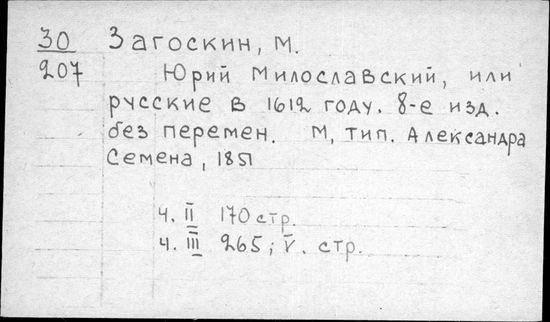 30 Загоскин, М.
207 Юрий Милославский, или
русские в 1612 году. 8-е изд.
без перемен. М, тип. Александра
Семена, 1851
ч. II 170 стр.
ч. III 265; V. стр.